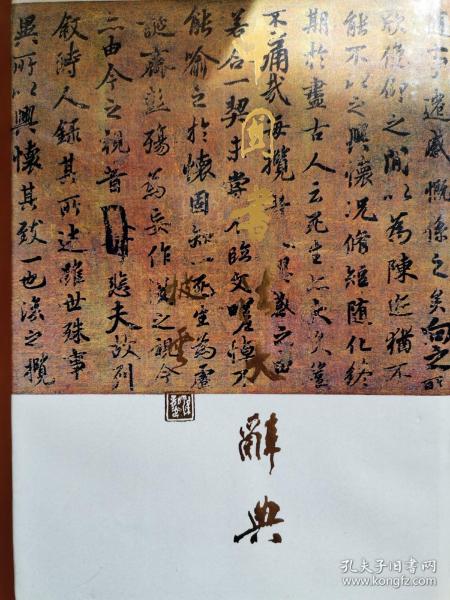 中國書法大辭典
披雲
隨事遷感慨係之矣向之所
欣俛仰之閒以為陳迹猶不
能不以之興懷況脩短隨化終
期於盡古人云死生亦大矣豈
不痛哉每攬昔人興感之由
若合一契未嘗不臨文嗟悼不
能喻之於懷固知一死生為虛
誕齊彭殤為妄作後之視今
亦由今之視昔悲夫故列
敘時人錄其所述雖世殊事
異所以興懷其致一也後之攬
孔夫子旧书网
www.kongfz.com